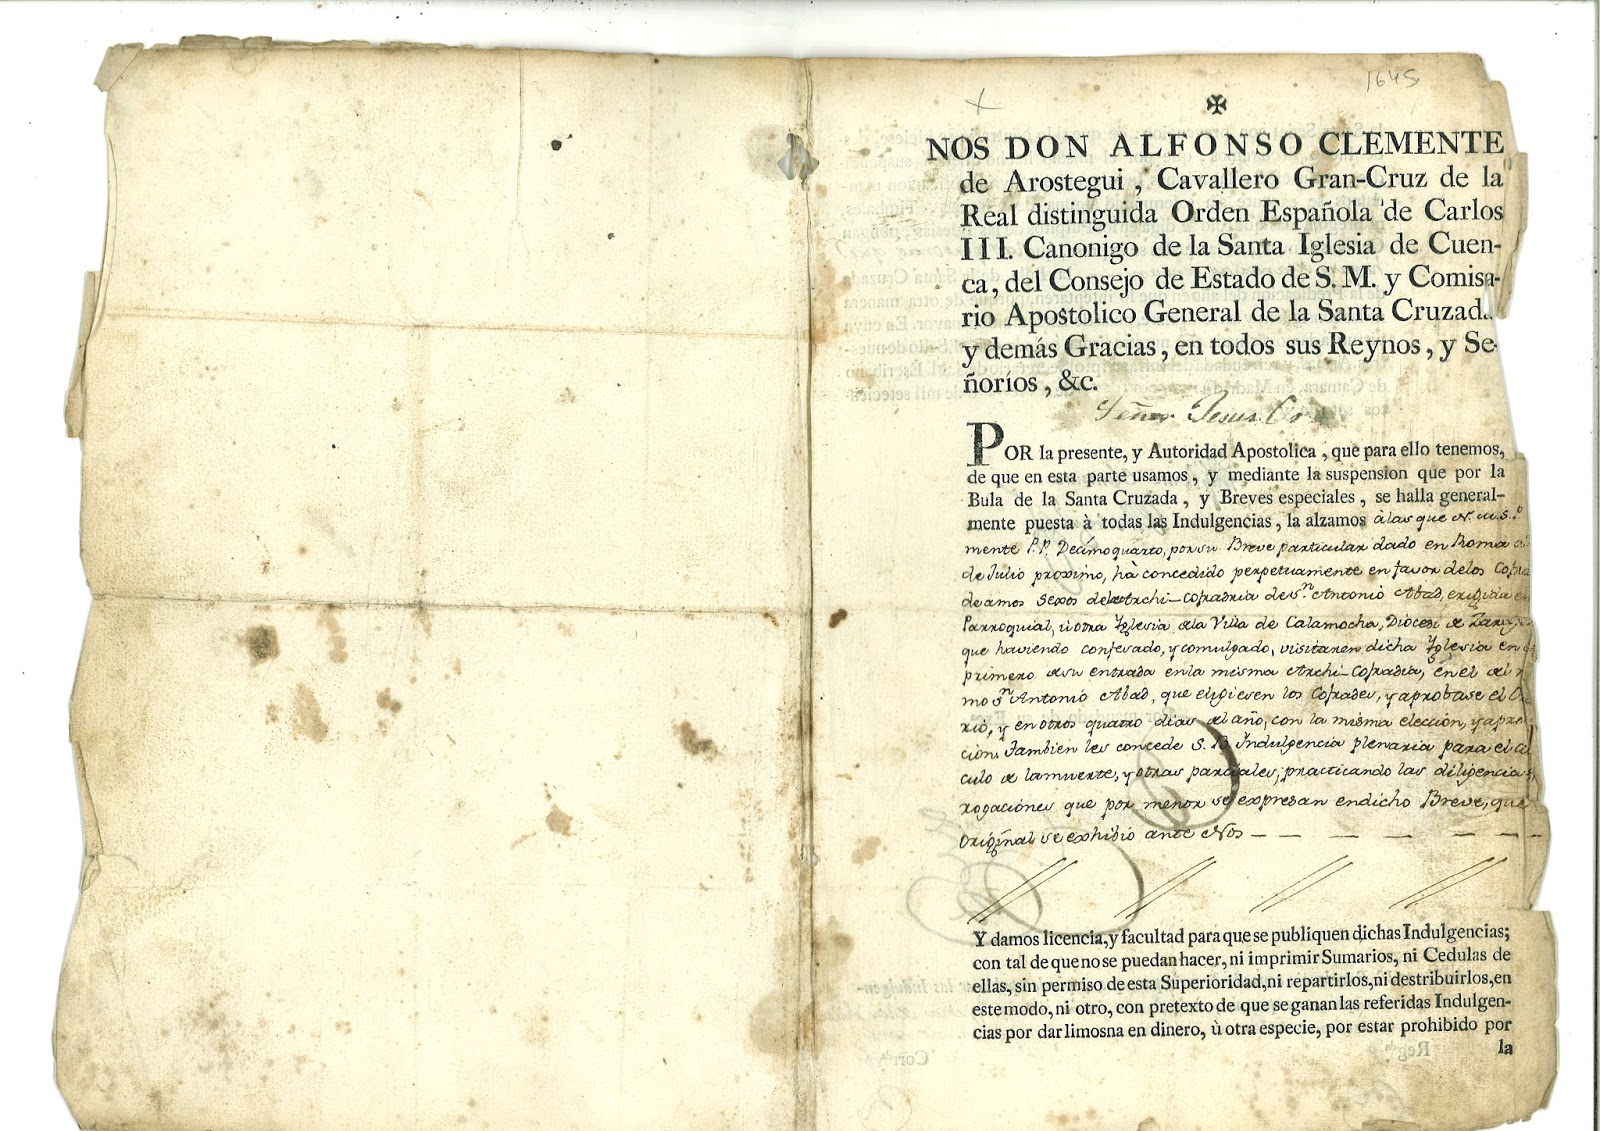 1645
✠
NOS DON ALFONSO CLEMENTE
de Arostegui, Cavallero Gran-Cruz de la
Real distinguida Orden Española de Carlos
III. Canonigo de la Santa Iglesia de Cuen-
ca, del Consejo de Estado de S. M. y Comisa-
rio Apostolico General de la Santa Cruzad
y demás Gracias, en todos sus Reynos, y Se-
ñoríos, &c.
Señor Jesus
POR la presente, y Autoridad Apostolica, que para ello tenemos,
de que en esta parte usamos, y mediante la suspension que por la
Bula de la Santa Cruzada, y Breves especiales, se halla general-
mente puesta à todas las Indulgencias, la alzamos à las que N. M. S. P.
mente P.P. Decimoquarto, por su Breve particular dado en Roma
de Julio proximo, hà concedido perpetuamente en favor delos Cofra
de amos sexos dela Archi-Cofradria de Sn. Antonio Abad, erigida en
Parroquial, ù otra Yglesia dela Villa de Calamocha, Diocesi de Zarag
que haviendo confesado, y comulgado, visitaren dicha Yglesia en
primero de su entrada en la misma Archi-Cofradia, en el del
mo Sn. Antonio Abad, que eligiesen los Cofrades, y aprobase el Or
rio, y en otros quatro dias del año, con la misma eleccion, y apro
cion. Tambien les concede S. B. Indulgencia plenaria para el
culo de la muerte, y otras parciales, practicando las diligencias
rogaciones que por menor se expresan en dicho Breve, que
Original se exhibio ante Nos
Y damos licencia, y facultad para que se publiquen dichas Indulgencias;
con tal de que no se puedan hacer, ni imprimir Sumarios, ni Cedulas de
ellas, sin permiso de esta Superioridad, ni repartirlos, ni destribuirlos, en
este modo, ni otro, con pretexto de que se ganan las referidas Indulgen-
cias por dar limosna en dinero, ù otra especie, por estar prohibido por
la